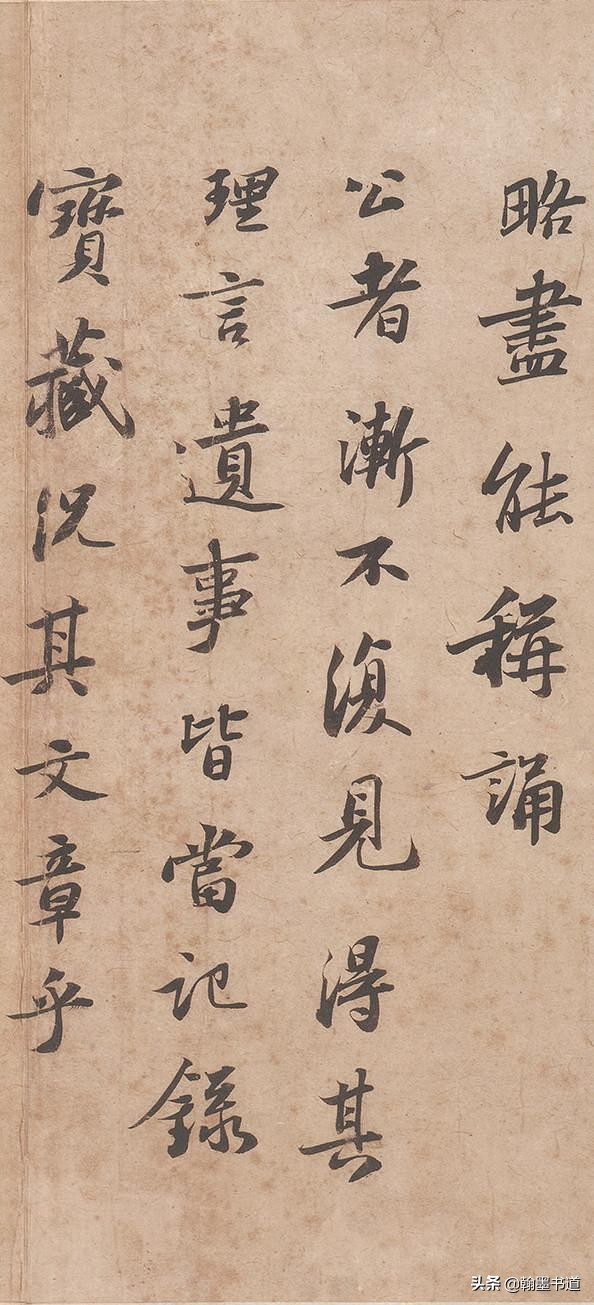 略盡能稱誦
公者漸不復見得其
理言遺事皆當記錄
寶藏況其文章乎
头条 @翰墨书道